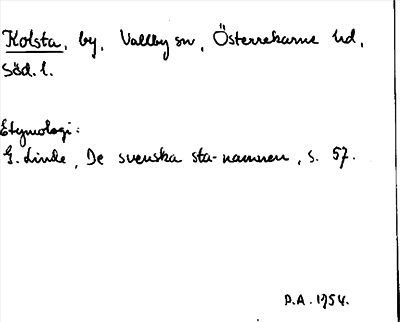 Kolsta, by, Vallby sn, Österrekarne hd,
Söd. l.
Etymologi:
G. Linde, De svenska sta-namnen, s. 57.
P.A. 1954.